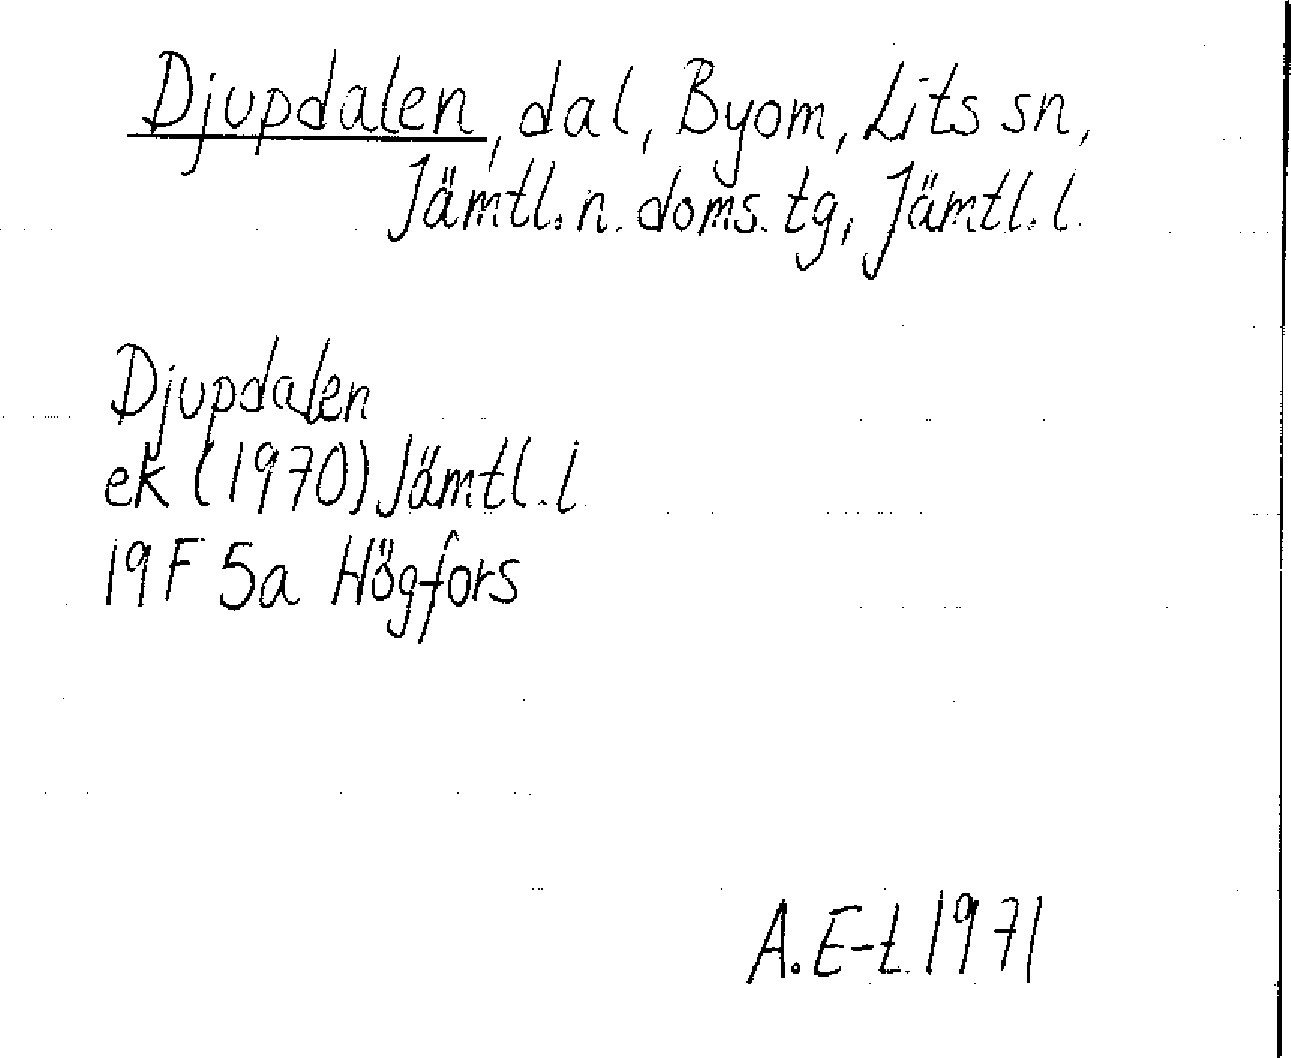 Djupdalen, dal, Byom, Lits sn,
Jämtl. n. doms. tg, Jämtl. l.
Djupdalen
ek (1970) Jämtl. l
19F 5a Högfors
A. E-t 1971